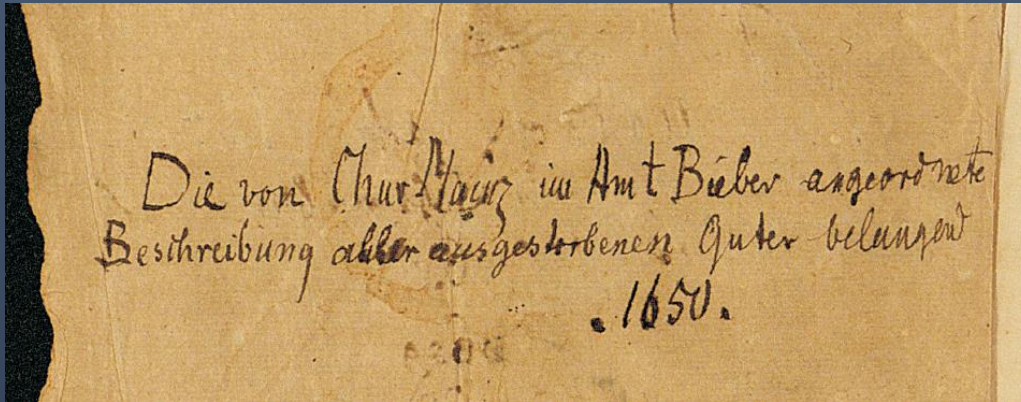 Die von Chur-Mainz im Amt Bieber angeordnete
Beschreibung aller ausgestorbenen Guter belangend
. 1650.